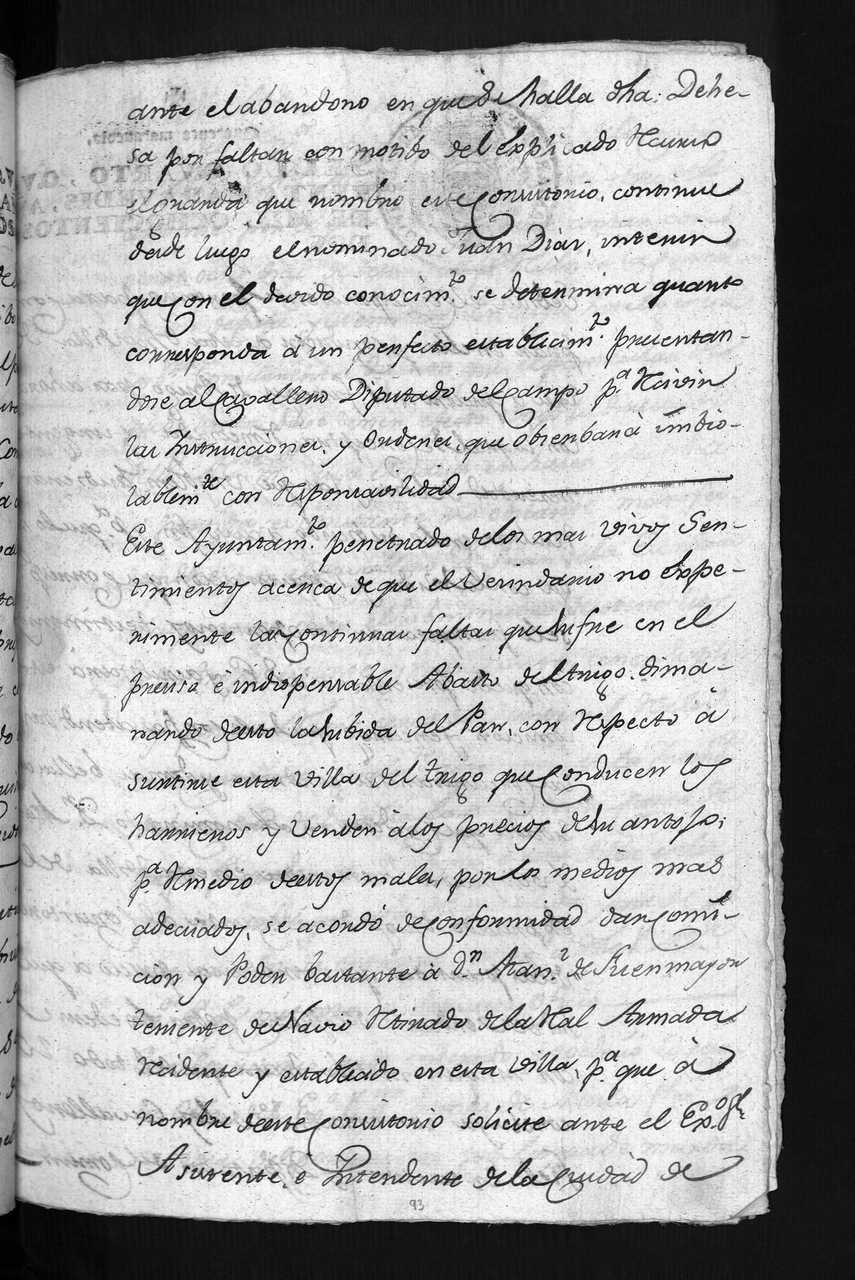 ante el abandono en que se halla dha: Dehe-
sa por faltar con motibo del explicado
el guarda que nombro este Consistorio, continue
desde luego el nominado Juan Diaz, interin
que con el devido conocim.to se determina quanto
corresponda â un perfecto establecim.to presentan-
dose al Cavallero Diputado del Campo p.a Recivir
las Instrucciones, y Ordenes, que obserbará imbio-
lablem.te con Responsavilidad
Este Ayuntam.to penetrado de los mas vivos Sen-
timientos acerca de que el Vecindario no Expe-
rimente las Continuas faltas que sufre en el
preciso é indispensable Abasto del trigo, dima-
nando de esto la subida del Pan, con Respecto â
surtirse esta Villa del trigo que Conducen los
harrieros y Venden â los precios de su antojo;
p.a Remedio de estos males, por los medios mas
adecuados, se acordó de Conformidad dar Comi-
ción y Poder bastante â D.n de Fuenmayor
Teniente de Navio Retirado de la Real Armada
Recidente y establecido en esta Villa, p.a que â
nombre de este Consistorio solicite ante el
Asistente, e Intendente de la Ciudad de
93